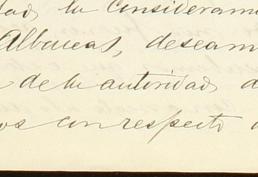 dad la consideram
Albaceas, deseam
de la autoridad d
os con respecto a